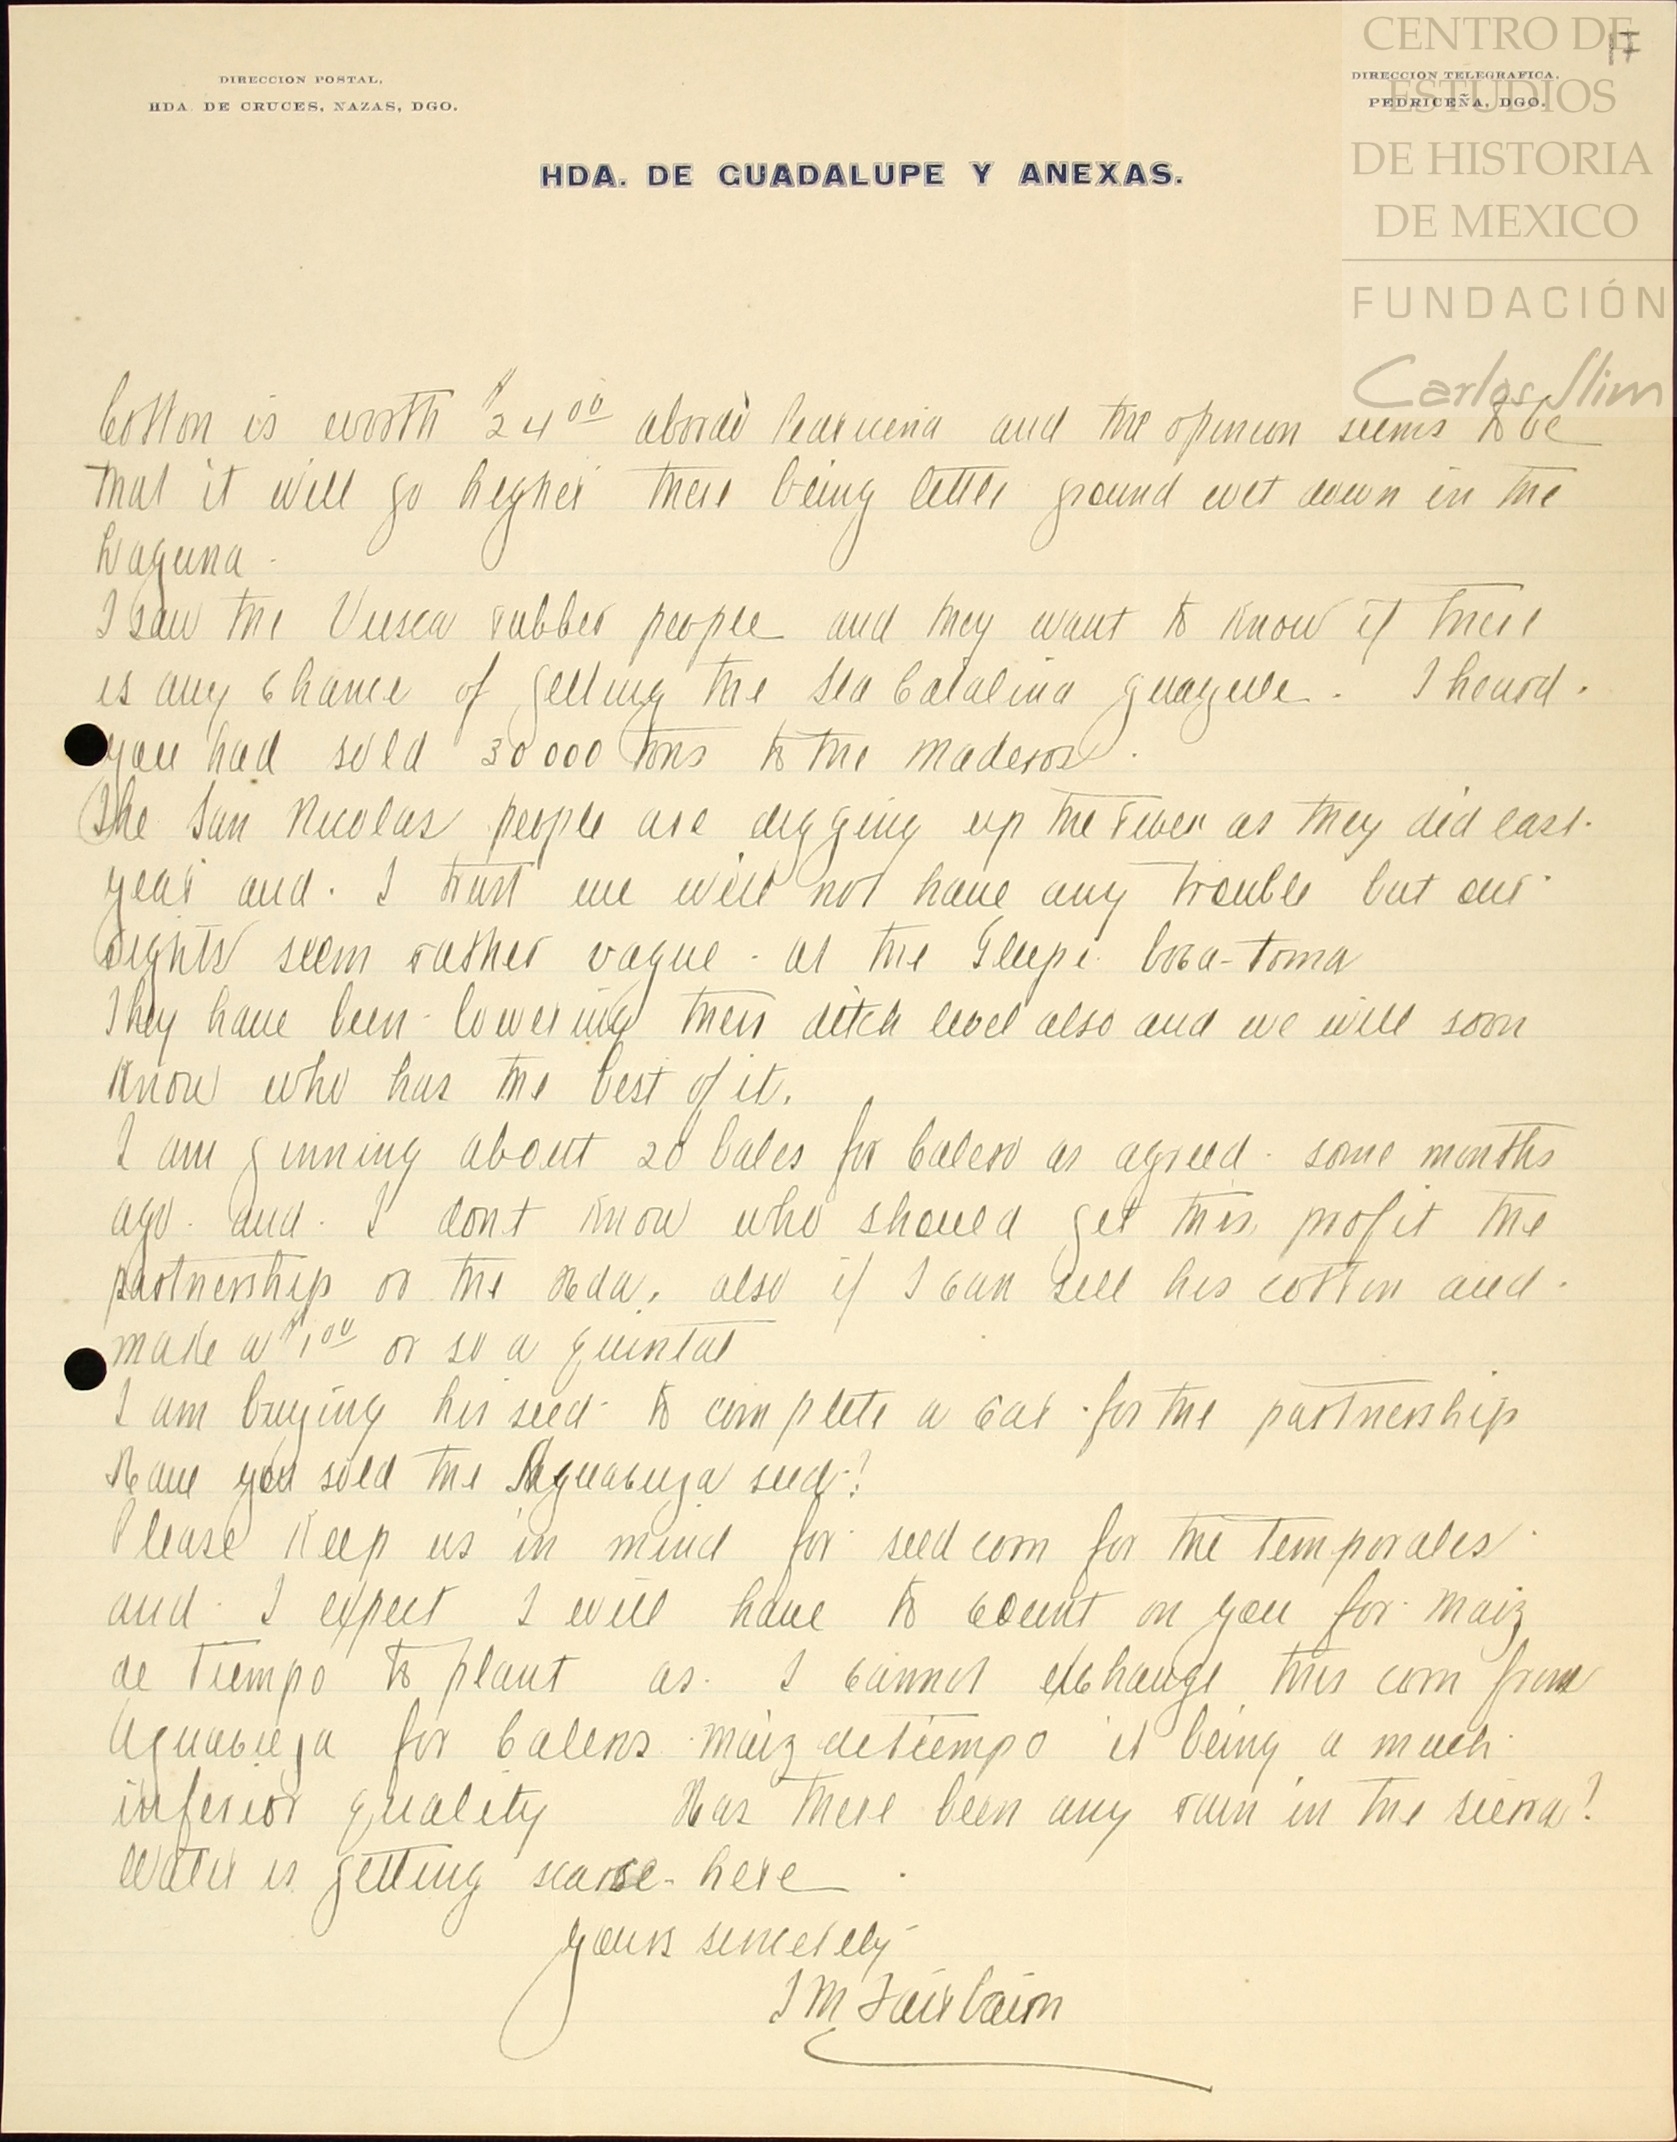 CENTRO DE
ESTUDIOS
DE HISTORIA
DE MEXICO
FUNDACIÓN
Carlos Slim
17
DIRECCION POSTAL,
HDA. DE CRUCES, NAZAS, DGO.
DIRECCION TELEGRAFICA,
PEDRICEÑA, DGO.
HDA. DE GUADALUPE Y ANEXAS.
Cotton is worth $24.00 abordo Pedriceña and the opinion seems to be
that it will go higher there being little ground wet down in the
Laguna.
I saw the Viesca rubber people and they want to know if there
is any chance of getting the Sta Catalina guayule. I heard
you had sold 30000 tons to the Maderos.
The San Nicolas people are digging up the river as they did last
year and I trust we will not have any trouble but our
rights seem rather vague at the boca-toma
They have been lowering their ditch level also and we will soon
know who has the best of it.
I am ginning about 20 bales for Calero as agreed some months
ago and I dont know who should get this profit the
partnership or the Hda, also if I can sell his cotton and
make a $1.00 or so a quintal
I am buying his seed to complete a car for the partnership
Have you sold the Aguavieja seed?
Please keep us in mind for seed corn for the temporales
and I expect I will have to count on you for maiz
de tiempo to plant as I cannot exchange this corn from
Aguavieja for Caleros maiz de tiempo it being a much
inferior quality Has there been any rain in the sierra?
Water is getting scarce here
yours sincerely
J M Fairbairn